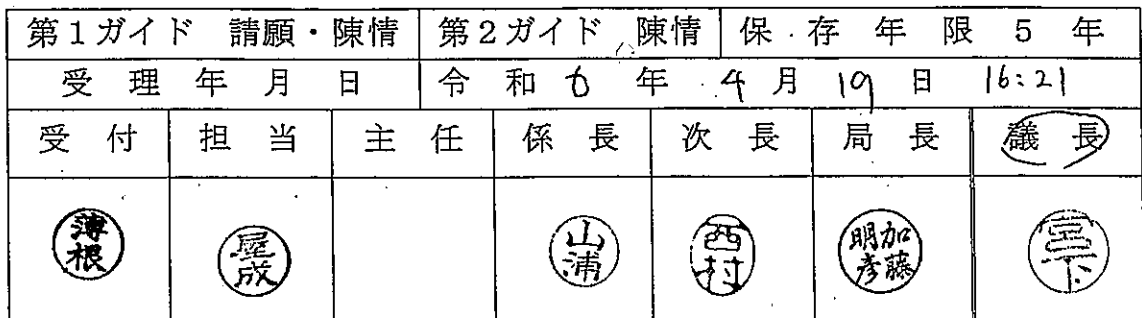 第1ガイド 請願・陳情 第2ガイド 陳情 保存年限5年
受理年月日 令和6年4月19日 16:21
受付 担当 主任 係長 次長 局長 議長
薄根 屋成 山浦 西村 加藤明彦 宮下